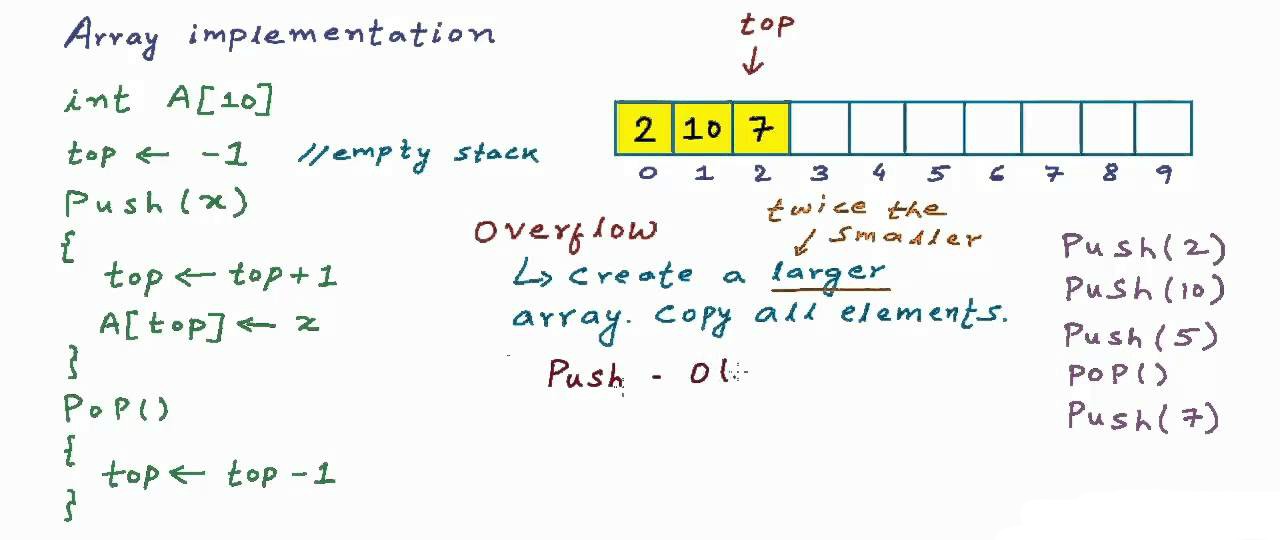 Array implementation
int A[10]
top ← -1 //empty stack
Push(x)
{
top ← top+1
A[top] ← x
}
Pop()
{
top ← top-1
}
top
↓
2 10 7
0 1 2 3 4 5 6 7 8 9
Overflow
twice the
smaller
↳ create a larger
array. copy all elements.
Push - O(
Push(2)
Push(10)
Push(5)
POP()
Push(7)